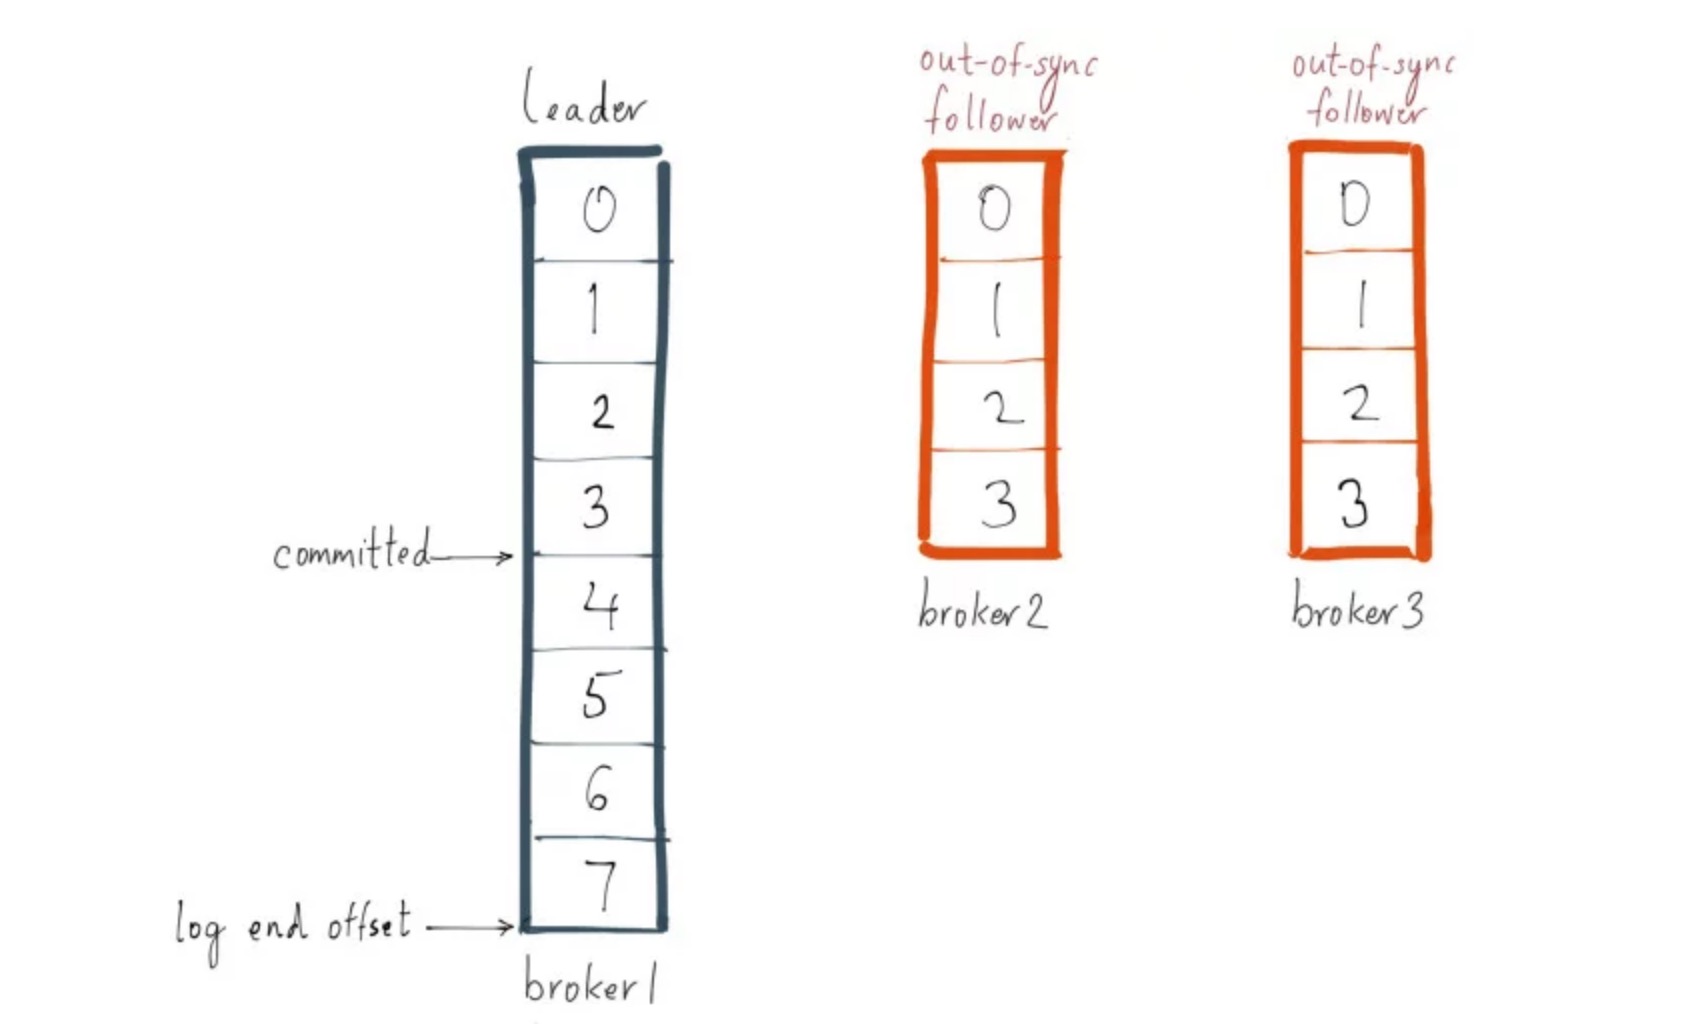 leader
0
1
2
3
committed
4
5
6
7
log end offset
broker1
out-of-sync
follower
0
1
2
3
broker2
out-of-sync
follower
0
1
2
3
broker3